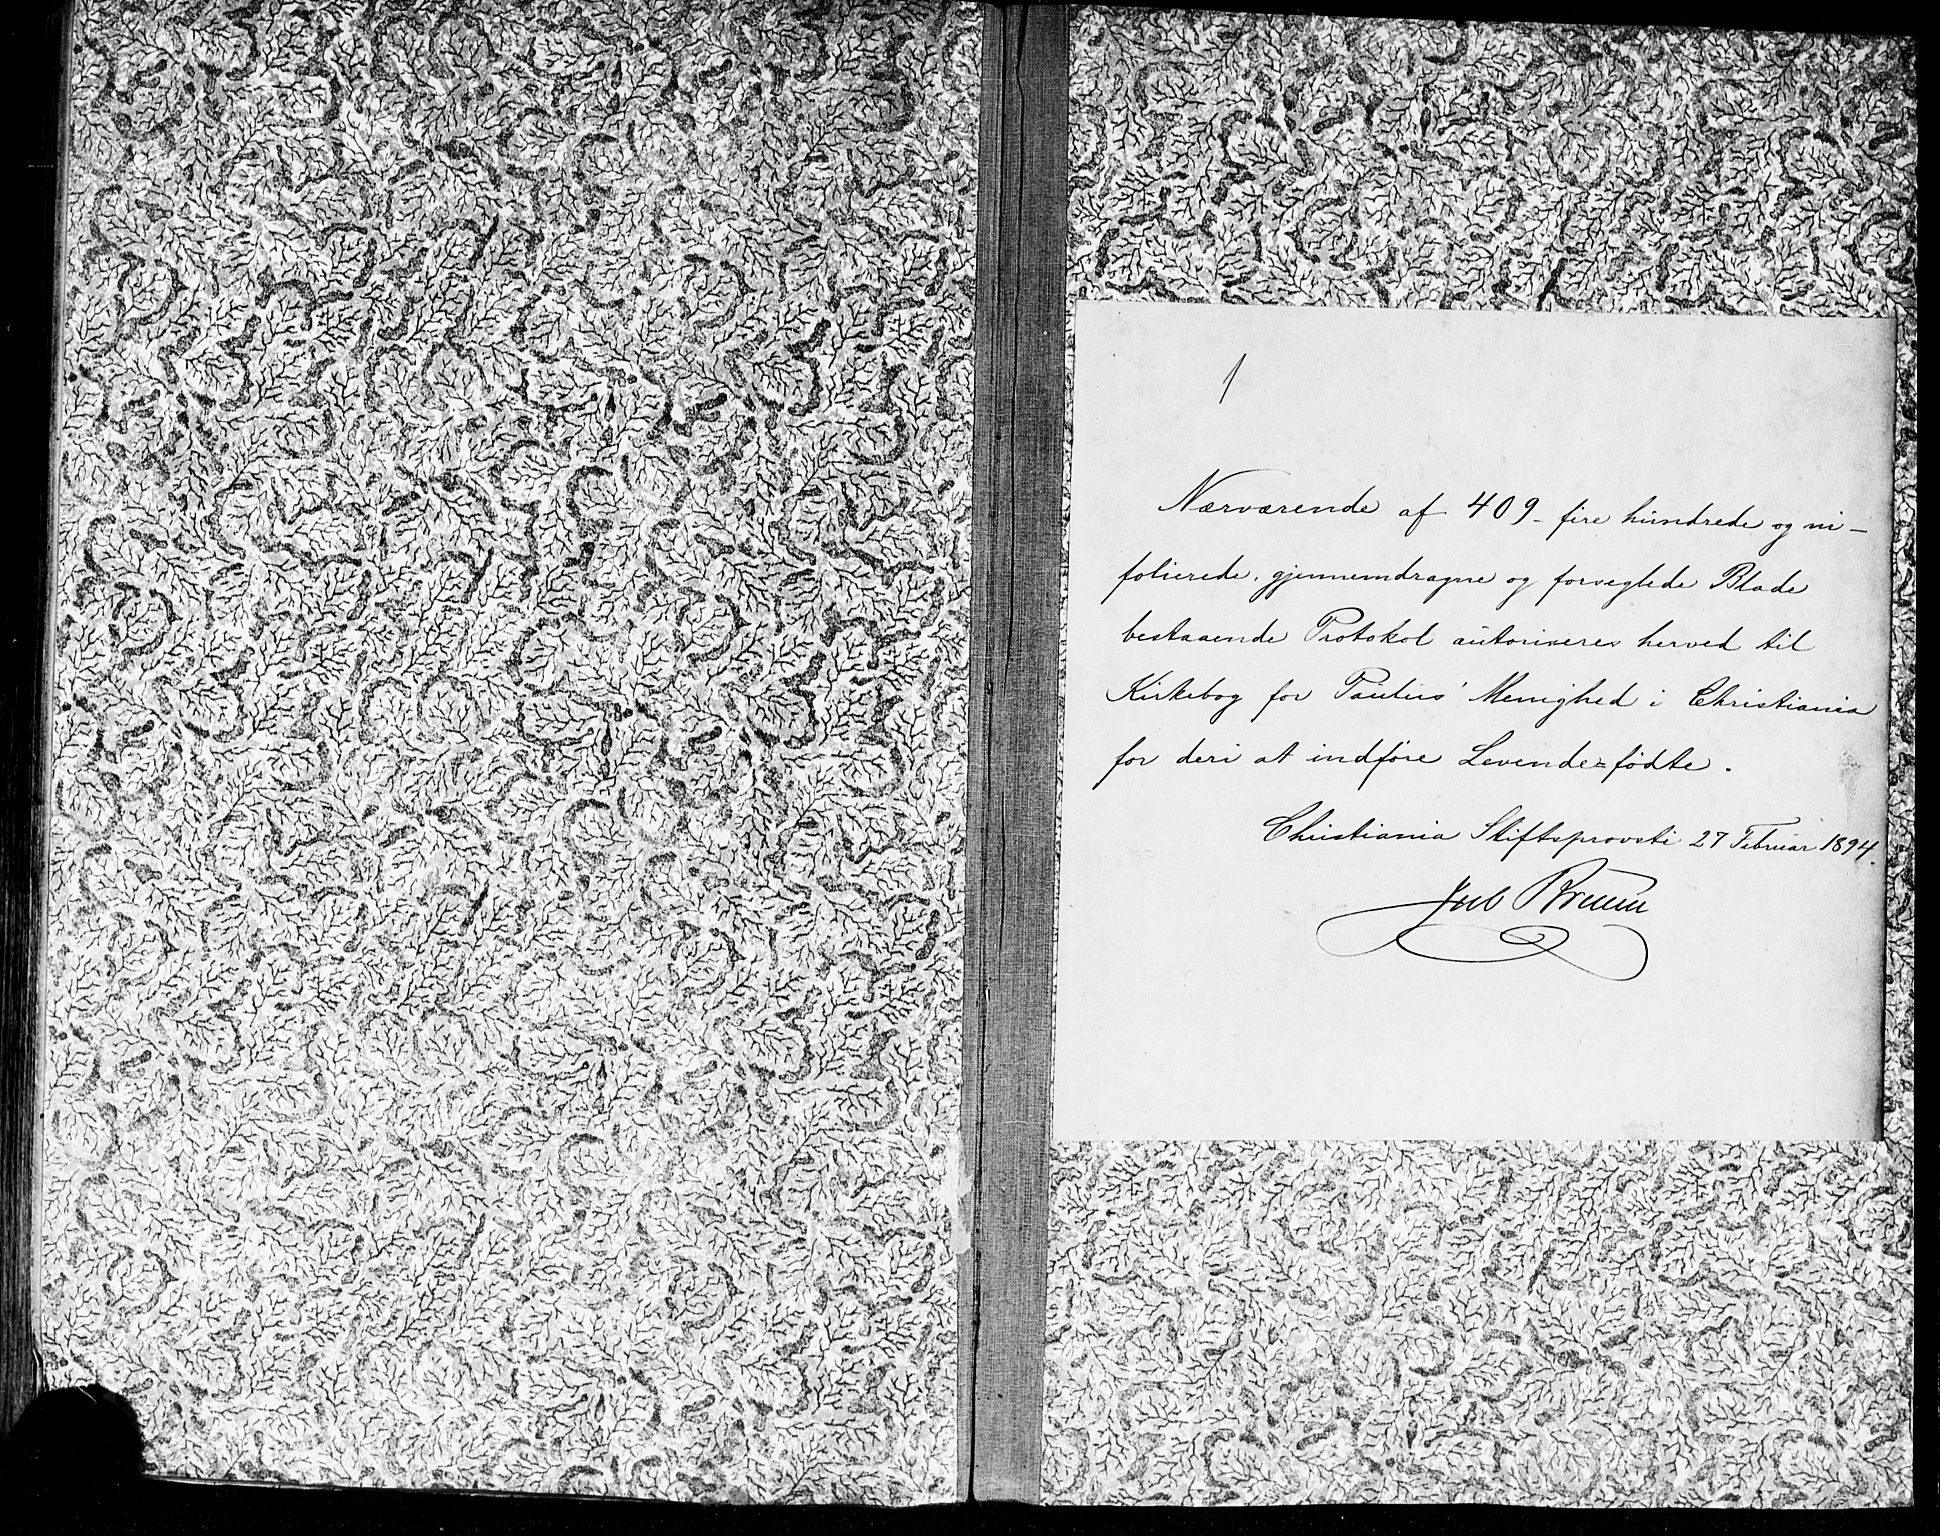 Nærværende af 409 - fire hundrede og ni -
folierede, gjennemdragne og forseglede Blade
bestaaende Protokol autoriseres herved til
Kirkebog for Paulus' Menighed i Christiania
for deri at indføre Levende=fødte.
Christiania Stiftsprovsti 27 Februar 1894.
Jul Bruun